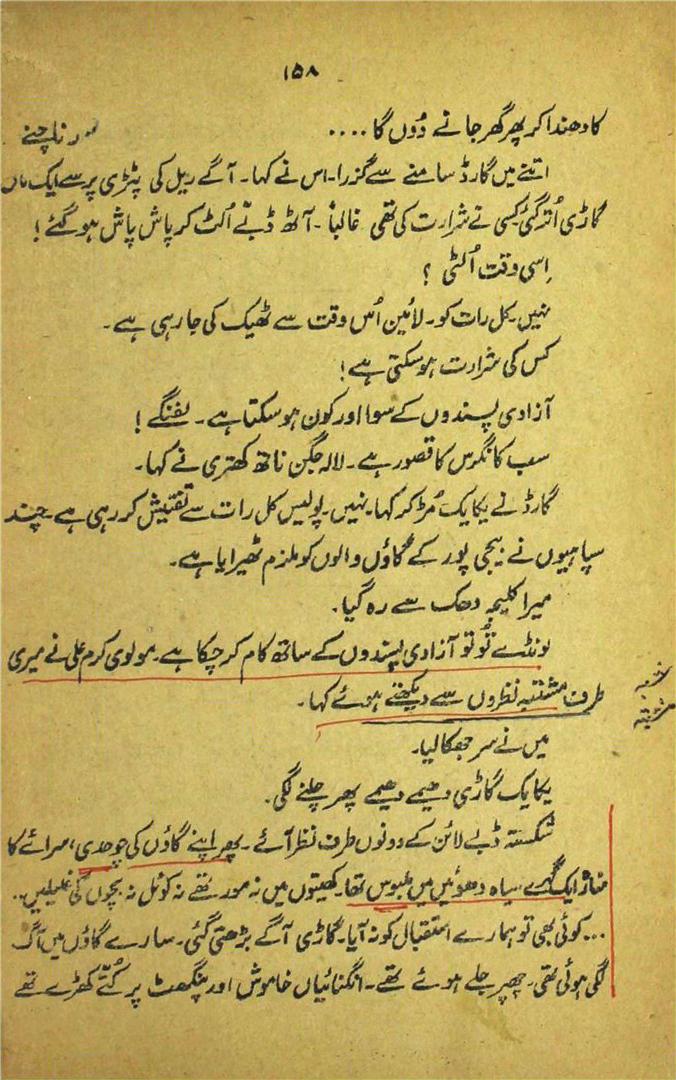 ۱۵۸
کا دھندا کر پھر گھر جانے دُوں گا ....
اتنے میں گارڈ سامنے سے گزرا۔ اس نے کہا۔ آگے ریل کی پٹڑی پر سے ایک مال
گاڑی اُتر گئی کسی نے شرارت کی تھی غالباً۔ آٹھ ڈبّے اُلٹ کر پاش پاش ہو گئے!
اِسی وقت اُلٹی ؟
نہیں۔ کل رات کو۔ لائین اُس وقت سے ٹھیک کی جا رہی ہے۔
کس کی شرارت ہو سکتی ہے!
آزادی پسندوں کے سوا اور کون ہو سکتا ہے۔ لفنگے!
سب کانگرس کا قصور ہے۔ لالہ جگن ناتھ کھتری نے کہا۔
گارڈ نے یکایک مُڑ کر کہا۔ نہیں۔ پولیس کل رات سے تفتیش کر رہی ہے۔ چند
سپاہیوں نے بیجی پور کے گاؤں والوں کو ملزم ٹھیرایا ہے۔
میرا کلیجہ دھک سے رہ گیا۔
لونڈے تُو تو آزادی پسندوں کے ساتھ کام کر چکا ہے۔ مولوی کرم علی نے میری
طرف مشتبہ نظروں سے دیکھتے ہوئے کہا۔
شبہ
مشتبہ
میں نے سر جھکا لیا۔
یکایک گاڑی دھیمے دھیمے پھر چلنے لگی۔
شکستہ ڈبے لائن کے دونوں طرف نظر آئے۔ پھر اپنے گاؤں کی چوحدی، سرائے کا
منار ایک گہرے سیاہ دھوئیں میں ملبوس تھا۔ کھیتوں میں نہ مور تھے نہ کوئل نہ بچوں کی غلیلیں ..
... کوئی بھی تو ہمارے استقبال کو نہ آیا۔ گاڑی آگے بڑھتی گئی۔ سارے گاؤں میں آگ
لگی ہوئی تھی۔ چھپر جلے ہوئے تھے۔ انگنائیاں خاموش اور پنگھٹ پر کُتّے کھڑے تھے